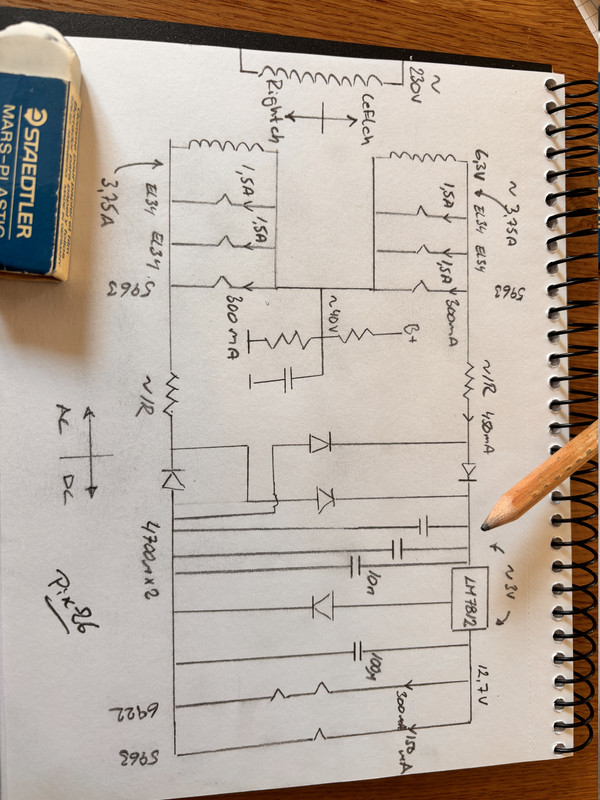 ~
230V
Right ch
Left ch
6,3V
~ 3,75A
1,5A
1,5A
EL34
EL34
5963
300mA
1,5A
1,5A
EL34
EL34
5963
300mA
3,75A
~40V
B+
~1R
~1R
450mA
AC
DC
4700µ x 2
10n
~3V
LM7812
12,7V
100µ
300mA
150mA
6922
5963
Pix86
STAEDTLER
MARS-PLASTIC